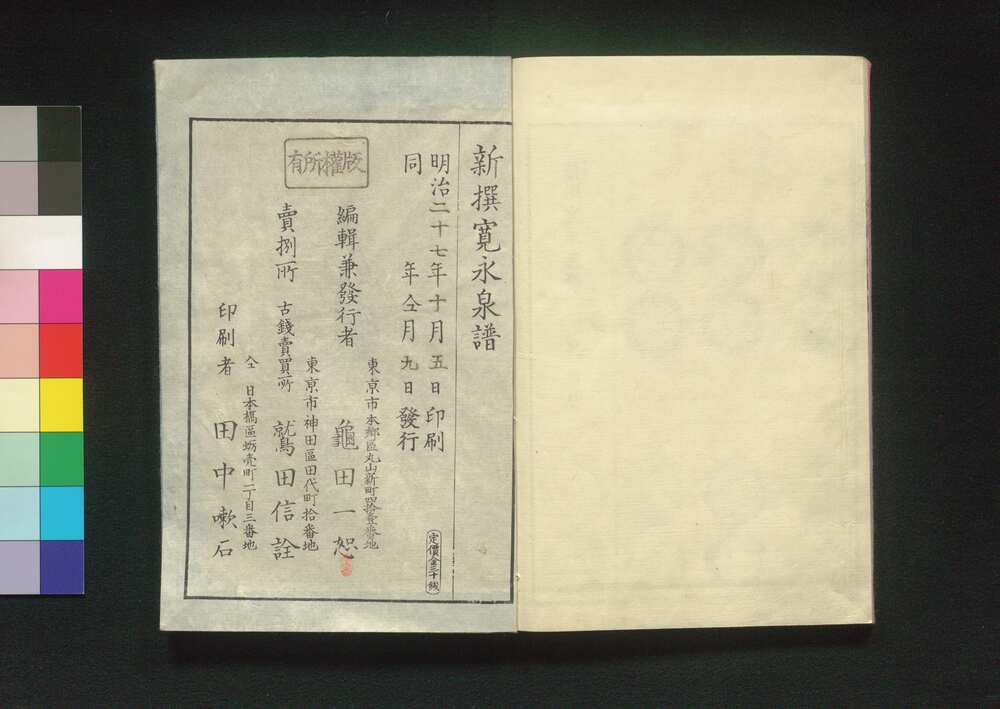 新撰寛永泉譜
明治二十七年十月五日印刷
同年仝月九日發行
定價金三十錢
版權所有
東京市本郷區丸山新町四拾壹番地
編輯兼發行者 龜田一恕
東京市神田區田代町拾番地
賣捌所 古錢賣買所 鷲田信詮
仝 日本橋區蛎壳町二丁目三番地
印刷者 田中嗽石